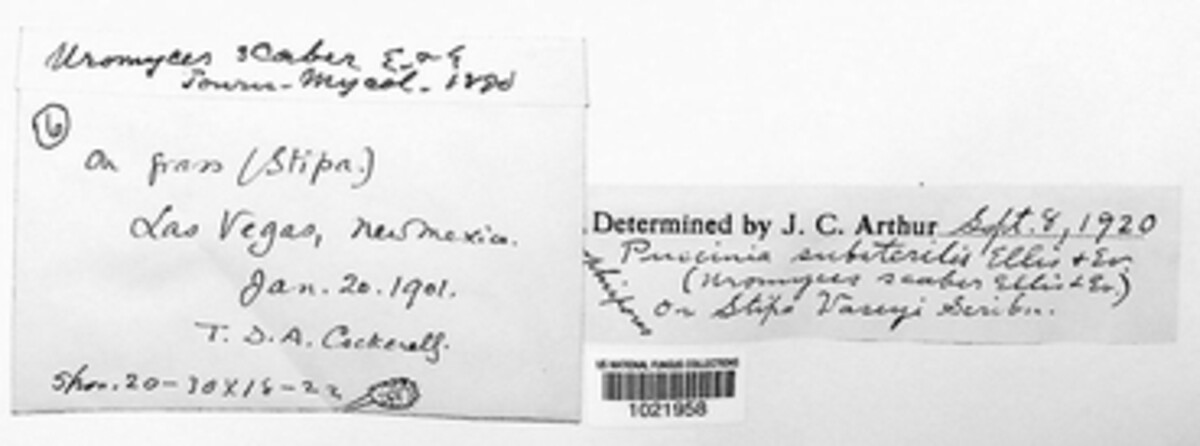 Uromyces scaber E. & E
Journ. Mycol. 1890
6
On grass (Stipa.)
Las Vegas, New Mexico.
Jan. 20. 1901.
T. D. A. Cockerell.
Spor. 20-30X18-22
Determined by J. C. Arthur Sept. 8, 1920
Puccinia substerilis Ellis & Ev
(Uromyces scaber Ellis & Ev.)
On Stipa Vaseyi Scribn.
US NATIONAL FUNGUS COLLECTIONS
1021958